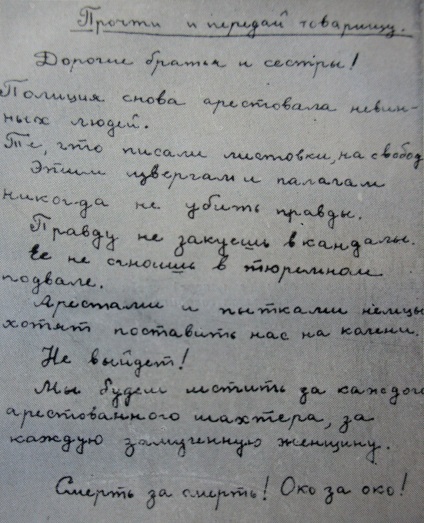 Прочти и передай товарищу.
Дорогие братья и сестры!
Полиция снова арестовала невин-
ных людей.
Те, что писали листовки, на свобод
Этим извергам и палачам
никогда не убить правды.
Правду не закуешь в кандалы.
Ее не сгноишь в тюремном
подвале.
Арестами и пытками немцы
хотят поставить нас на колени.
Не выйдет!
Мы будем мстить за каждого
арестованного шахтера, за
каждую замученную женщину.
Смерть за смерть! Око за око!